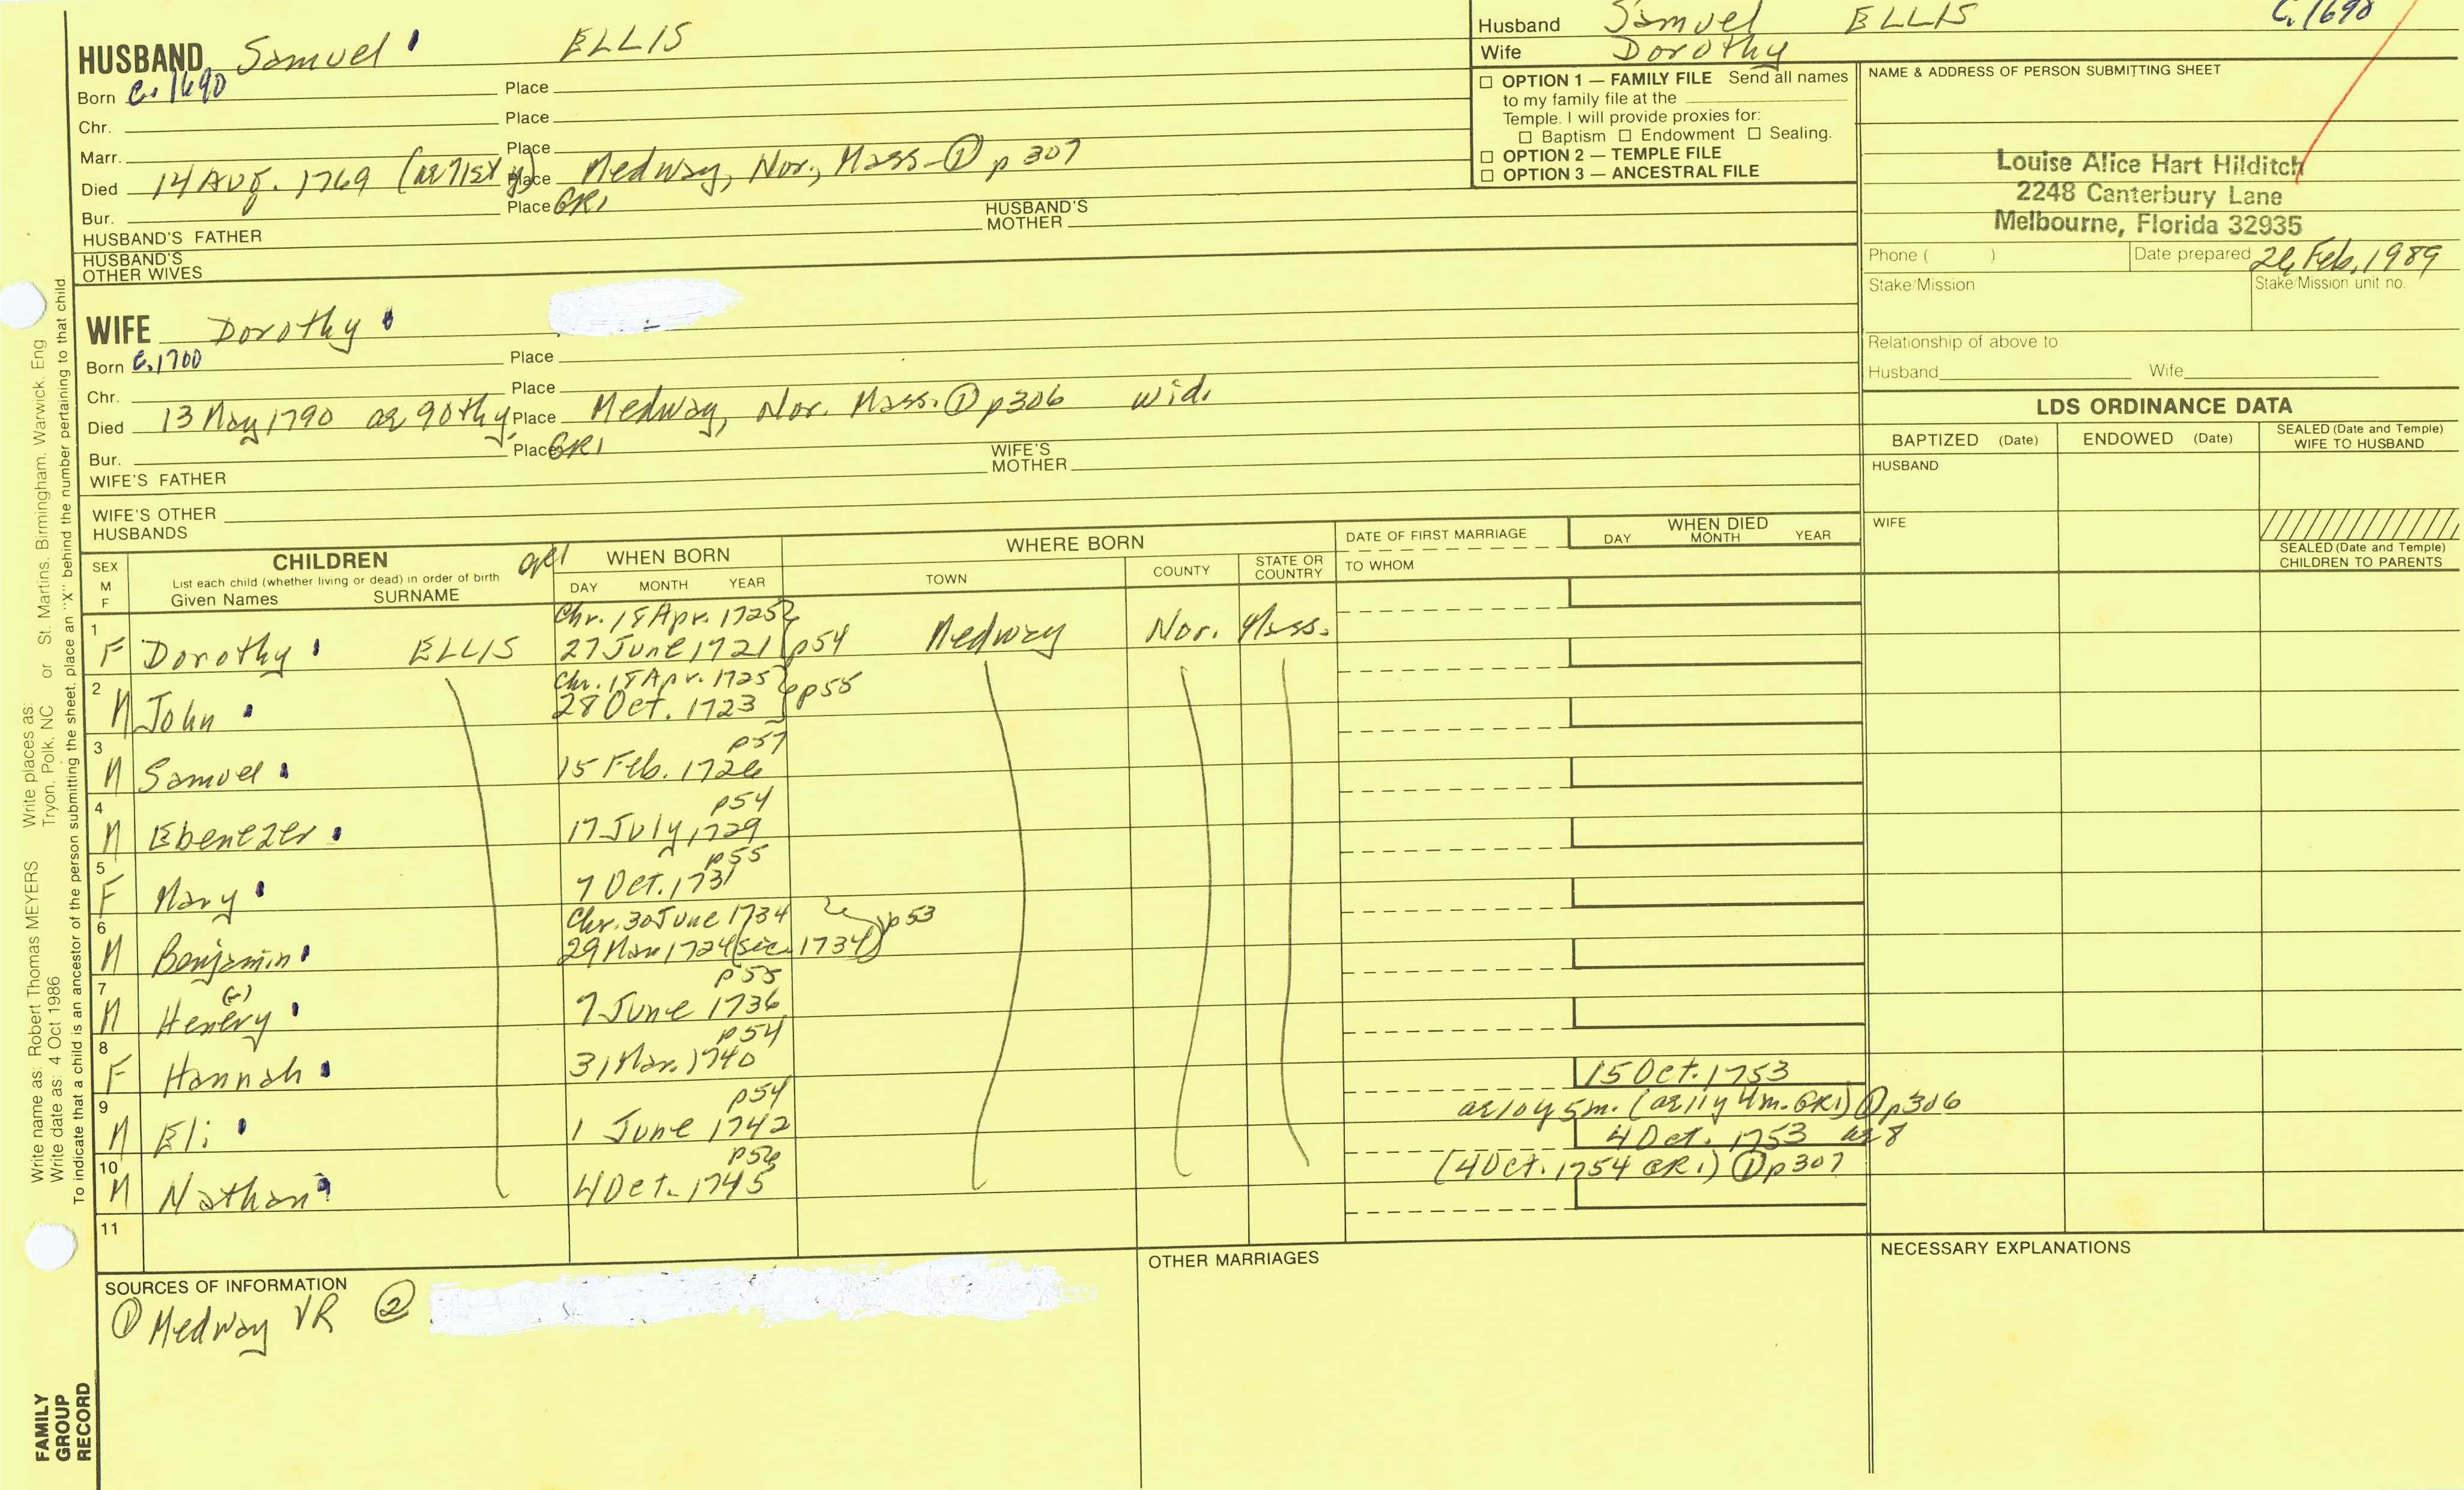 HUSBAND Samuel ELLIS
Born c. 1690 Place
Chr. Place
Marr. Place
Died 14 Aug. 1769 (ae 71st y) Place Medway, Nor., Mass ① p 307
Bur. Place GR1
HUSBAND'S FATHER HUSBAND'S MOTHER
HUSBAND'S OTHER WIVES
WIFE Dorothy
Born c. 1700 Place
Chr. Place
Died 13 May 1790 ae 90th y. Place Medway, Nor. Mass. ① p306 wid.
Bur. Place GR1
WIFE'S FATHER WIFE'S MOTHER
WIFE'S OTHER HUSBANDS
Husband Samuel ELLIS C. 1690
Wife Dorothy
☐ OPTION 1 — FAMILY FILE Send all names
to my family file at the
Temple. I will provide proxies for:
☐ Baptism ☐ Endowment ☐ Sealing.
☐ OPTION 2 — TEMPLE FILE
☐ OPTION 3 — ANCESTRAL FILE
NAME & ADDRESS OF PERSON SUBMITTING SHEET
Louise Alice Hart Hilditch
2248 Canterbury Lane
Melbourne, Florida 32935
Phone ( ) Date prepared Feb. 1989
Stake/Mission Stake/Mission unit no.
Relationship of above to
Husband Wife
LDS ORDINANCE DATA
BAPTIZED (Date) ENDOWED (Date) SEALED (Date and Temple) WIFE TO HUSBAND
HUSBAND
WIFE
SEALED (Date and Temple) CHILDREN TO PARENTS
SEX M F
CHILDREN
List each child (whether living or dead) in order of birth
Given Names SURNAME
WHEN BORN
DAY MONTH YEAR
WHERE BORN
TOWN COUNTY STATE OR COUNTRY
DATE OF FIRST MARRIAGE
TO WHOM
WHEN DIED
DAY MONTH YEAR
Chr. 18 Apr. 1725
1 F Dorothy ELLIS 27 June 1721 p54 Medway Nor. Mass.
Chr. 18 Apr. 1725
2 M John 28 Oct. 1723 p55
p57
3 M Samuel 15 Feb. 1726
p54
4 M Ebenezer 17 July, 1729
p55
5 F Mary 7 Oct. 1731
Chr. 30 June 1734
6 M Benjamin 29 Mar 1724 (sic. 1734) p53
p55
7 M Henery 7 June 1736
p54
8 F Hannah 31 Mar. 1740
p54 15 Oct. 1753
ae 10 y 5 m. (ae 11 y 4 m. GR1) ① p306
9 M Eli 1 June 1742
p56 4 Oct. 1753 ae 8
(4 Oct. 1754 GR1) ① p307
10 M Nathan 4 Oct. 1745
11
SOURCES OF INFORMATION
① Medway VR ②
OTHER MARRIAGES
NECESSARY EXPLANATIONS
Write name as: Robert Thomas MEYERS Write places as: St. Martins, Birmingham, Warwick, Eng
Write date as: 4 Oct 1986 Tryon, Polk, NC or
To indicate that a child is an ancestor of the person submitting the sheet, place an "X" behind the number pertaining to that child.
FAMILY
GROUP
RECORD